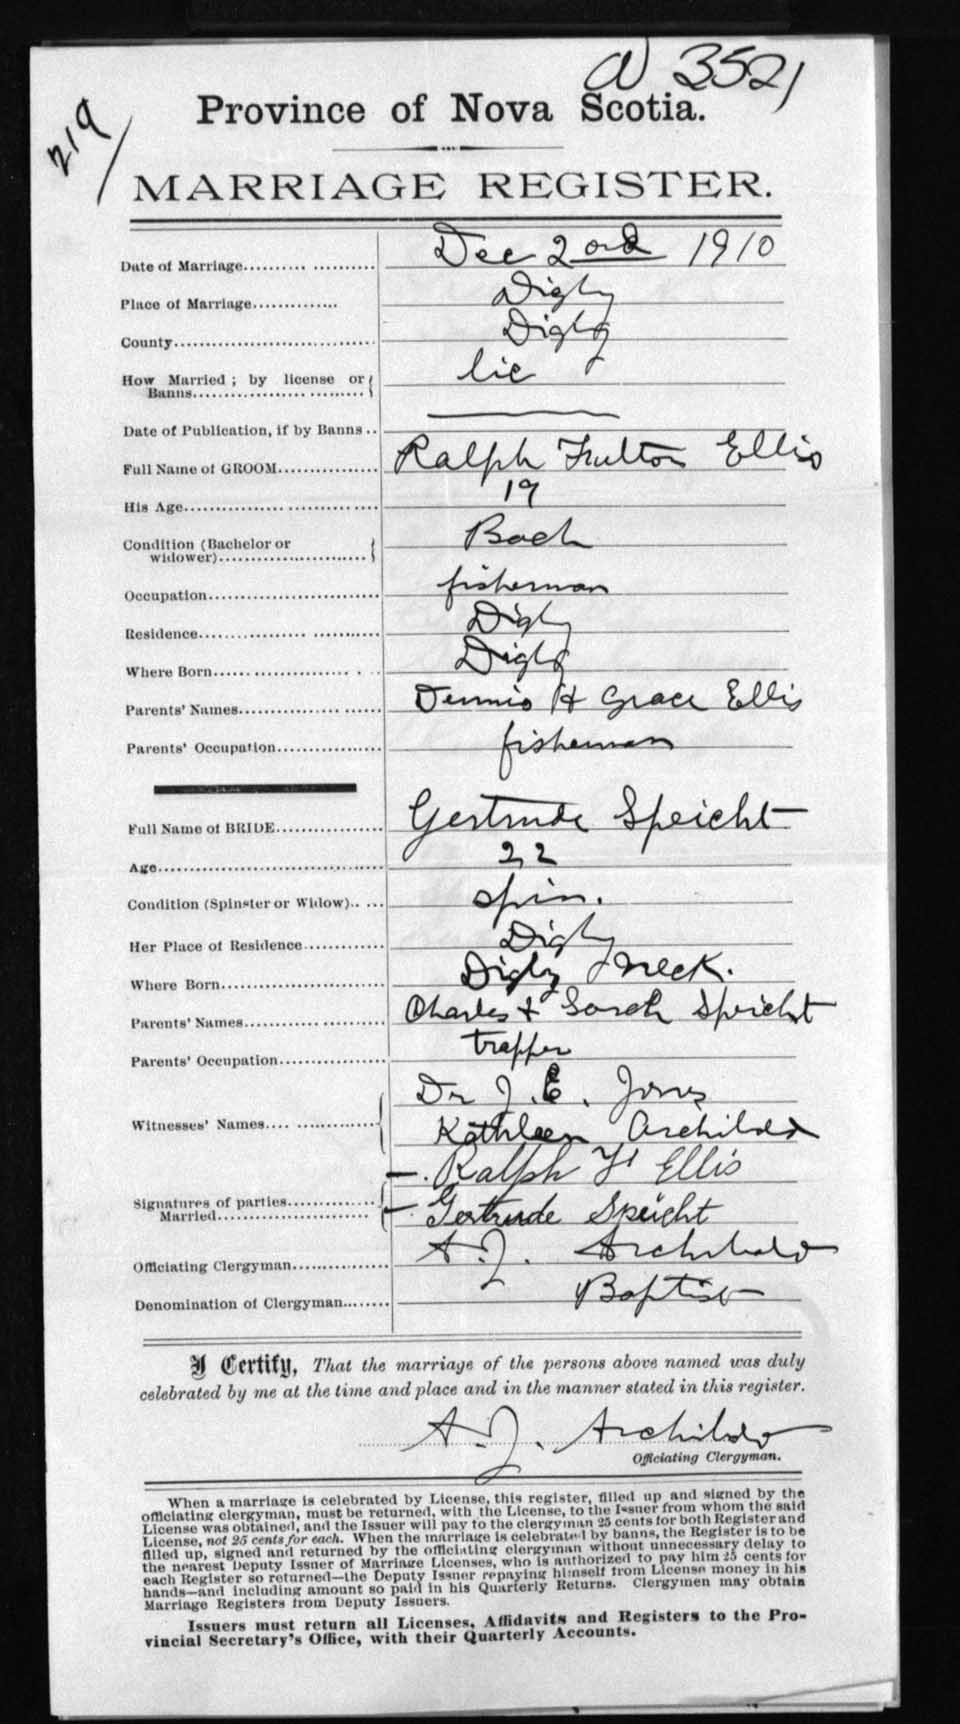 N 3521
219
Province of Nova Scotia.
MARRIAGE REGISTER.
Date of Marriage.......... ........... Dec 2nd 1910
Place of Marriage.............. Digby
County................................ Digby
How Married ; by license or lic
Banns.................. .........
Date of Publication, if by Banns ..
Full Name of GROOM................ Ralph Fulton Ellis
His Age.................. .............. 19
Condition (Bachelor or Bach
widower).......................
Occupation........................... fisherman
Residence................ ........... Digby
Where Born...... ............... . . Digby
Parents' Names................ ...... Dennis H Grace Ellis
Parents' Occupation................. fisherman
Full Name of BRIDE................. Gertrude Speicht
Age..................................... 22
Condition (Spinster or Widow).. ... spin.
Her Place of Residence............. Digby
Where Born........................... Digby Neck.
Parents' Names....................... Charles + Sarah Speicht
Parents' Occupation................. trapper
Dr J. E. Jones
Witnesses' Names.... ............... Kathleen Archibald
Ralph F Ellis
Signatures of parties..............
Married........................ Gertrude Speicht
Officiating Clergyman............... A. J. Archibald
Denomination of Clergyman........ Baptist
I Certify, That the marriage of the persons above named was duly
celebrated by me at the time and place and in the manner stated in this register.
A. J. Archibald
Officiating Clergyman.
When a marriage is celebrated by License, this register, filled up and signed by the
officiating clergyman, must be returned, with the License, to the Issuer from whom the said
License was obtained, and the Issuer will pay to the clergyman 25 cents for both Register and
License, not 25 cents for each. When the marriage is celebrated by banns, the Register is to be
filled up, signed and returned by the officiating clergyman without unnecessary delay to
the nearest Deputy Issuer of Marriage Licenses, who is authorized to pay him 25 cents for
each Register so returned—the Deputy Issuer repaying himself from License money in his
hands—and including amount so paid in his Quarterly Returns. Clergymen may obtain
Marriage Registers from Deputy Issuers.
Issuers must return all Licenses, Affidavits and Registers to the Pro-
vincial Secretary's Office, with their Quarterly Accounts.